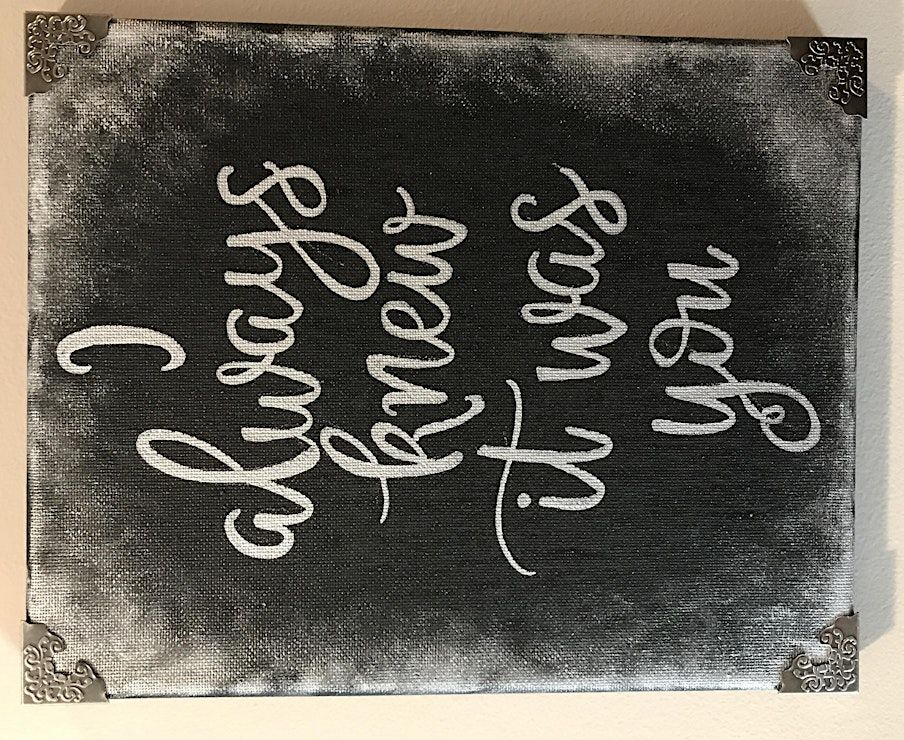 I
always
knew
it was
you